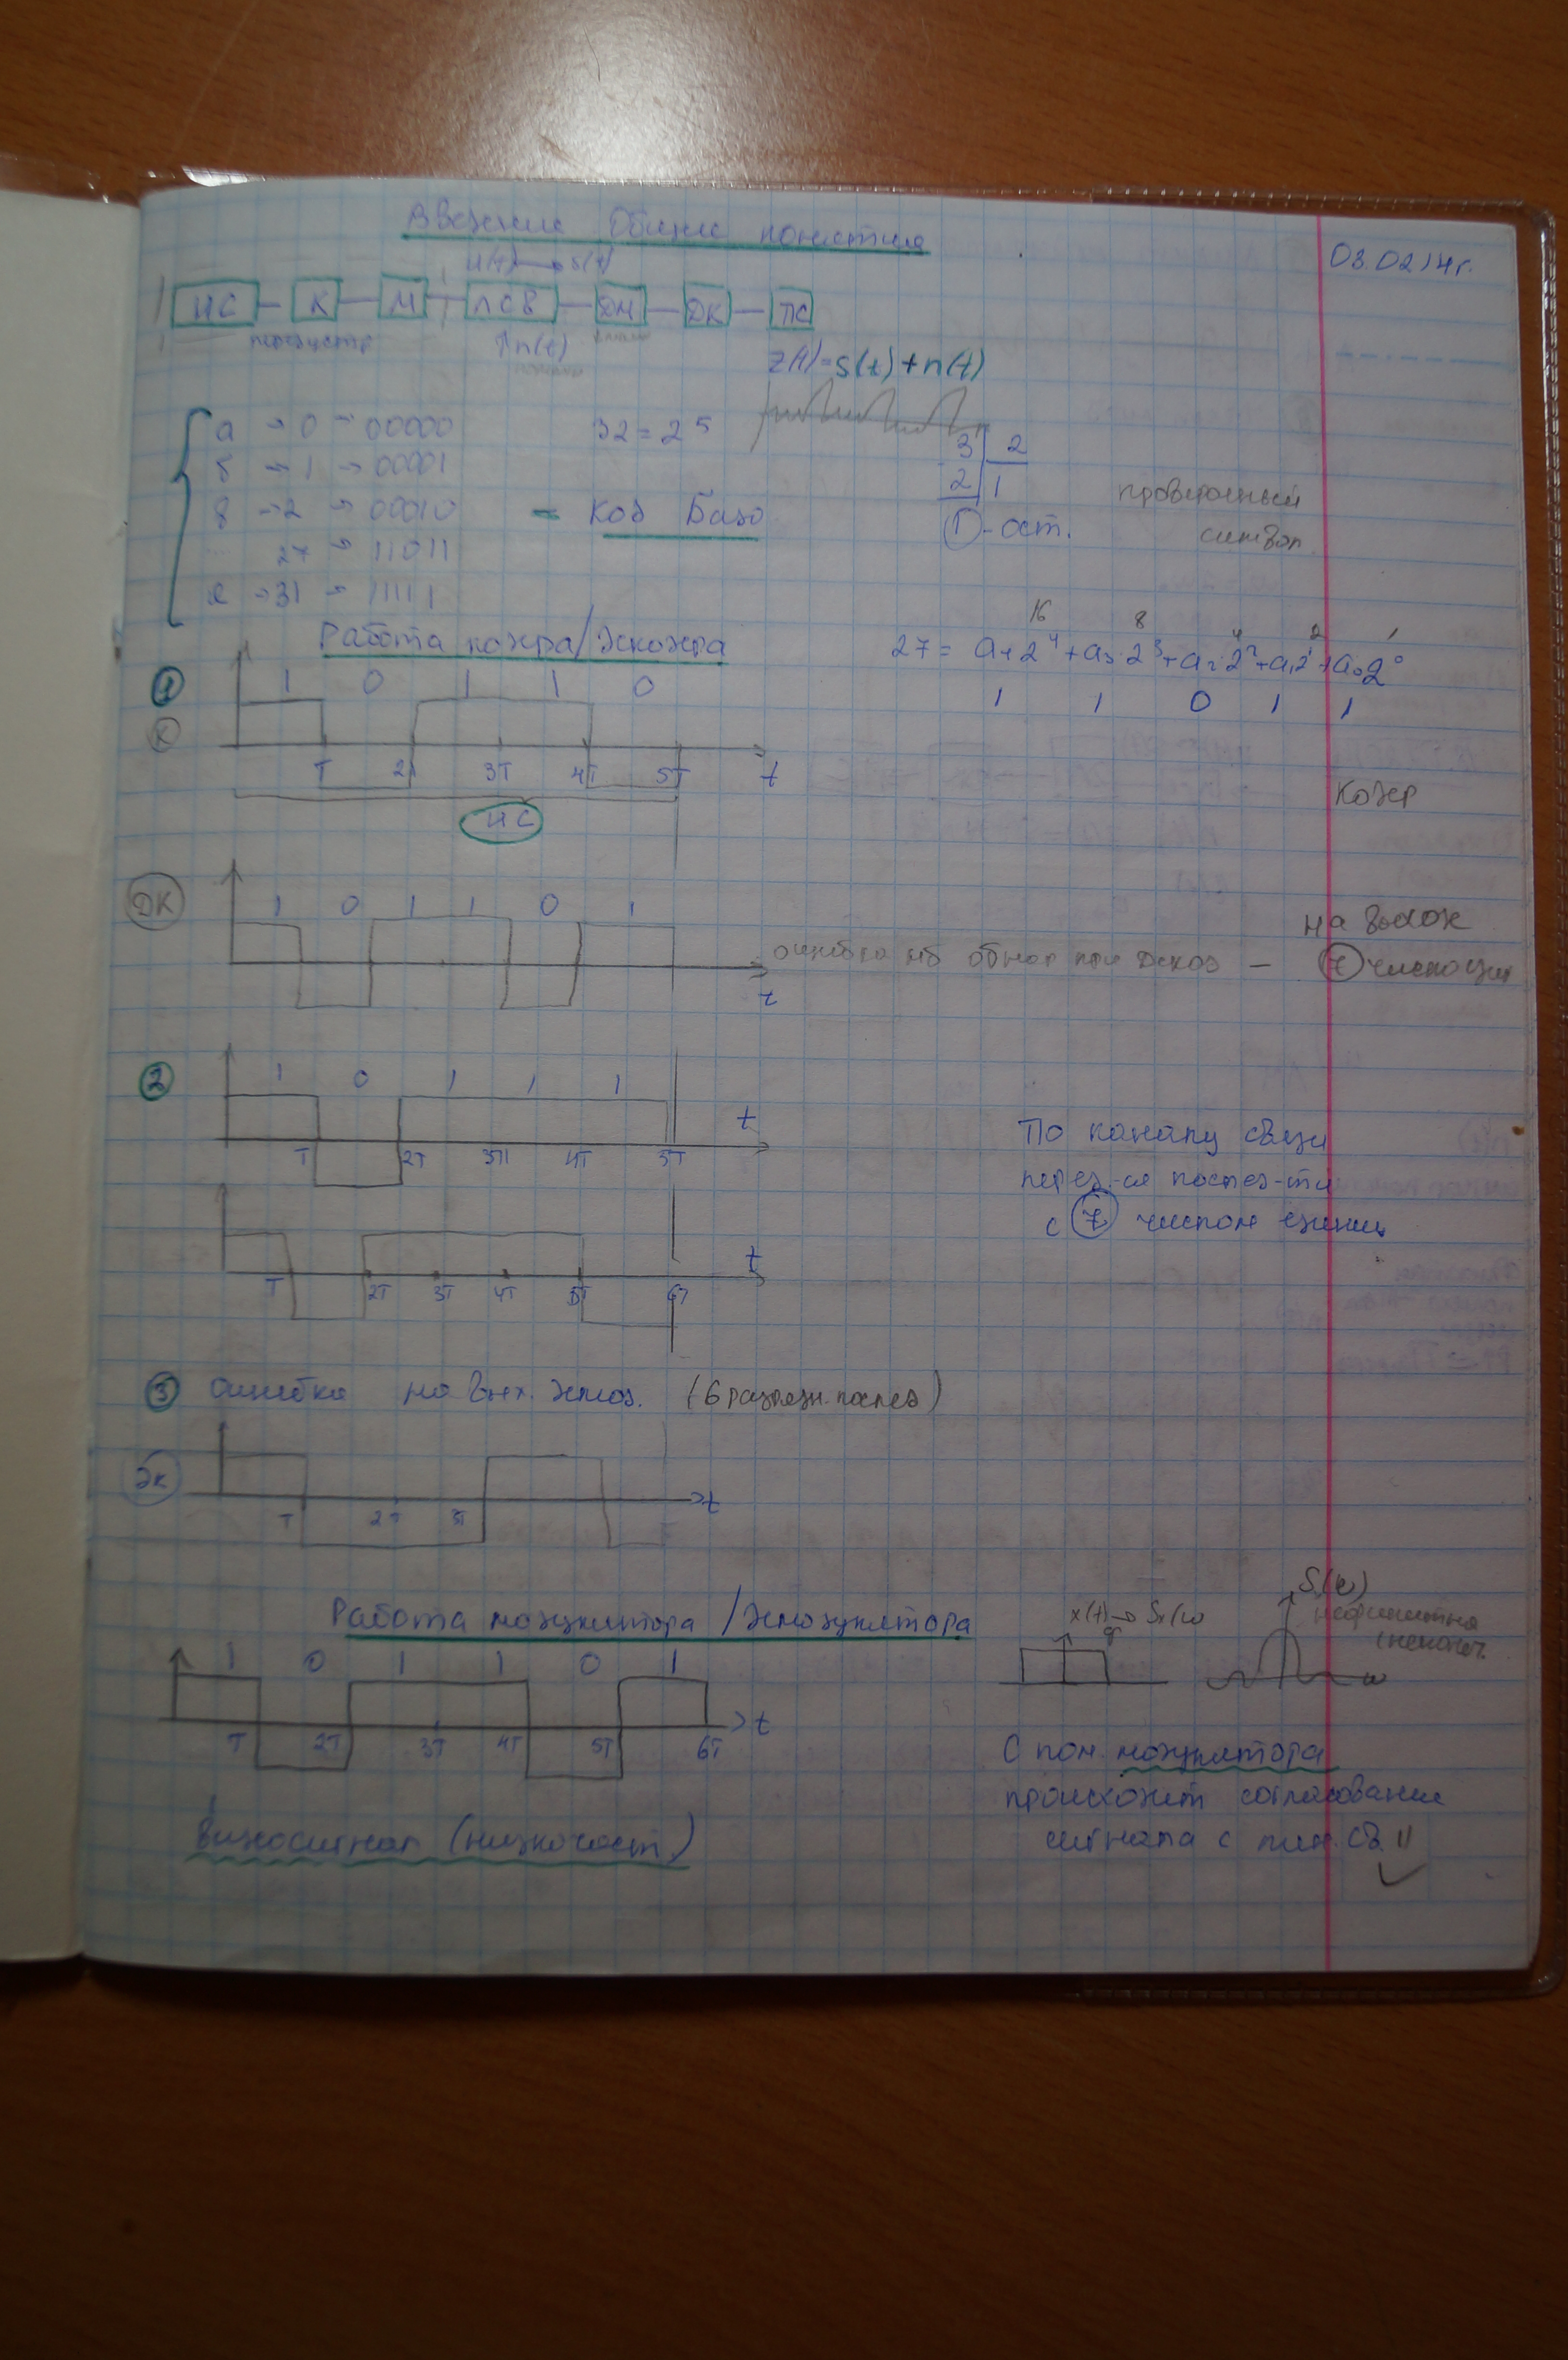 Введение Общие понятия
03.02.14г.
u(t) → s(t)
ИС – К – М – ЛСВ – ДМ – ДК – ПС
↑n(t)
z(t)=s(t)+n(t)
а → 0 → 00000
б → 1 → 00001
в → 2 → 00010
... 27 → 11011
я → 31 → 11111
32 = 2⁵
– код Бодо
3 2
2 1
1 - ост.
проверочный
символ
Работа кодера/декодера
16 8 4 2 1
27 = a₄2⁴+a₃·2³+a₂·2²+a₁2¹+a₀2⁰
1 1 0 1 1
1
1 0 1 1 0
К
T 2T 3T 4T 5T t
ИС
кодер
ДК
1 0 1 1 0 1
t
ошибка мб обнар при декод –
на выход
ч число един
2
1 0 1 1 1
t
T 2T 3T 4T 5T
По каналу связи
перед-ся послед-ти
с ч числом единиц
t
T 2T 3T 4T 5T 6T
3 ошибка на вых. демод. (6 разрядн. послед)
ДК
T 2T 3T t
Работа модулятора / демодулятора
1 0 1 1 0 1
T 2T 3T 4T 5T 6T t
Видеосигнал (низкочаст)
x(t) → Sx(ω
S(ω)
ω
С пом. модулятора
происходит согласование
сигнала с лин. св. !!